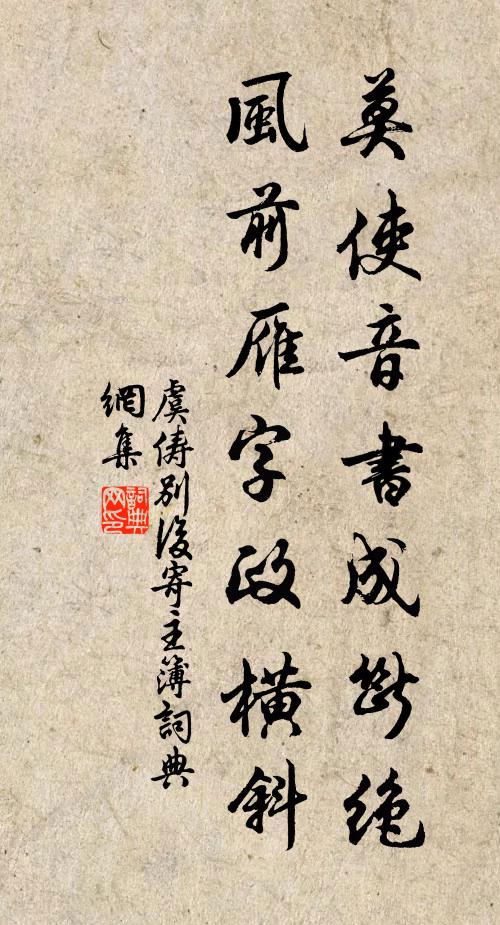 莫使音書成斷絶
風前雁字政橫斜
虞儔別後寄主簿詞典
網集
詞典
网印